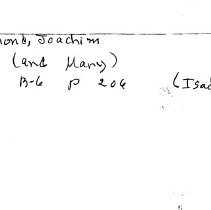 mont, Joachim
(and Mary)
B-6 p 206 (Isa